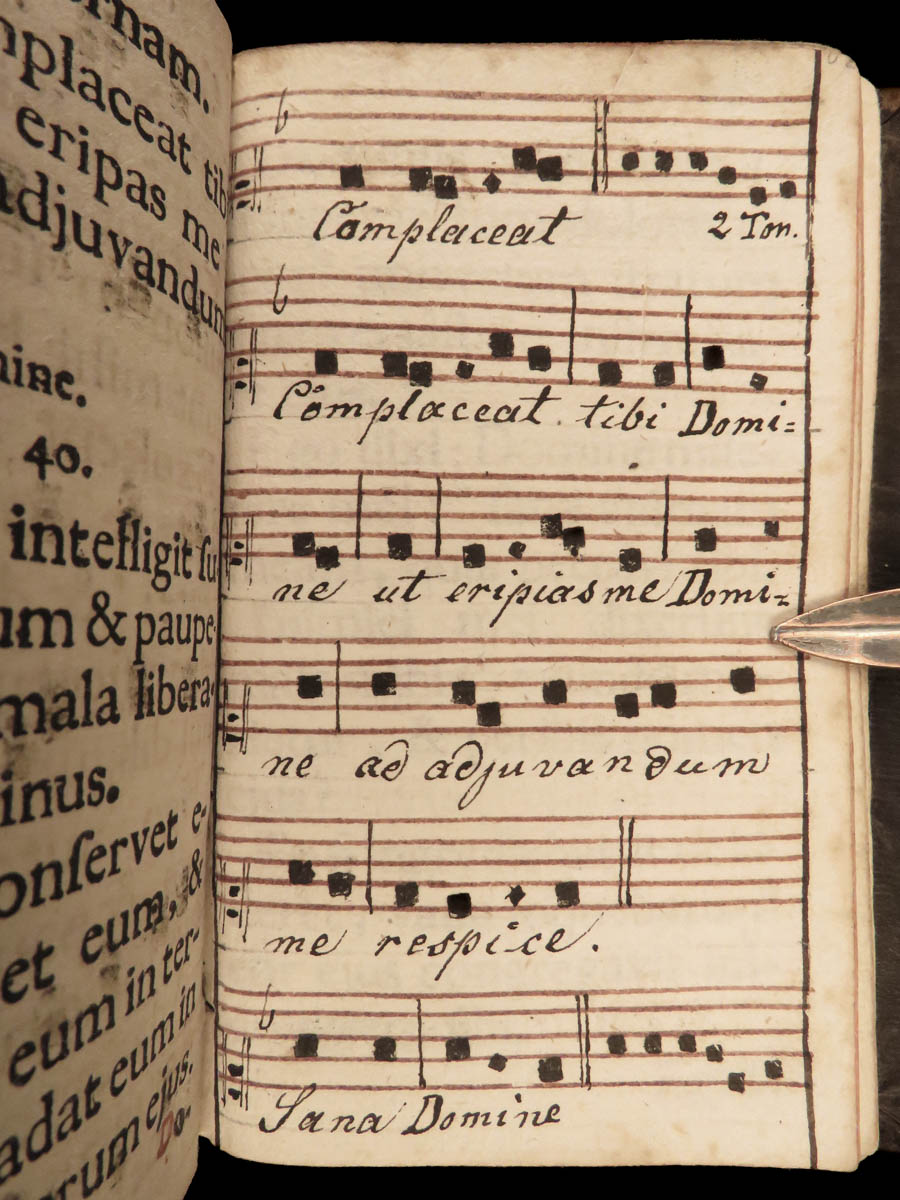 mplaceat tib
eripas me
adjuvandum
40.
intelligit ſu
um & paupe-
mala libera-
inus.
onſervet e-
et eum, &
eum in ter-
adat eum in
orum ejus.
Do-
Complaceat 2 Ton.
Complaceat tibi Domi=
ne ut eripias me Domi=
ne ad adjuvandum
me respice.
Sana Domine